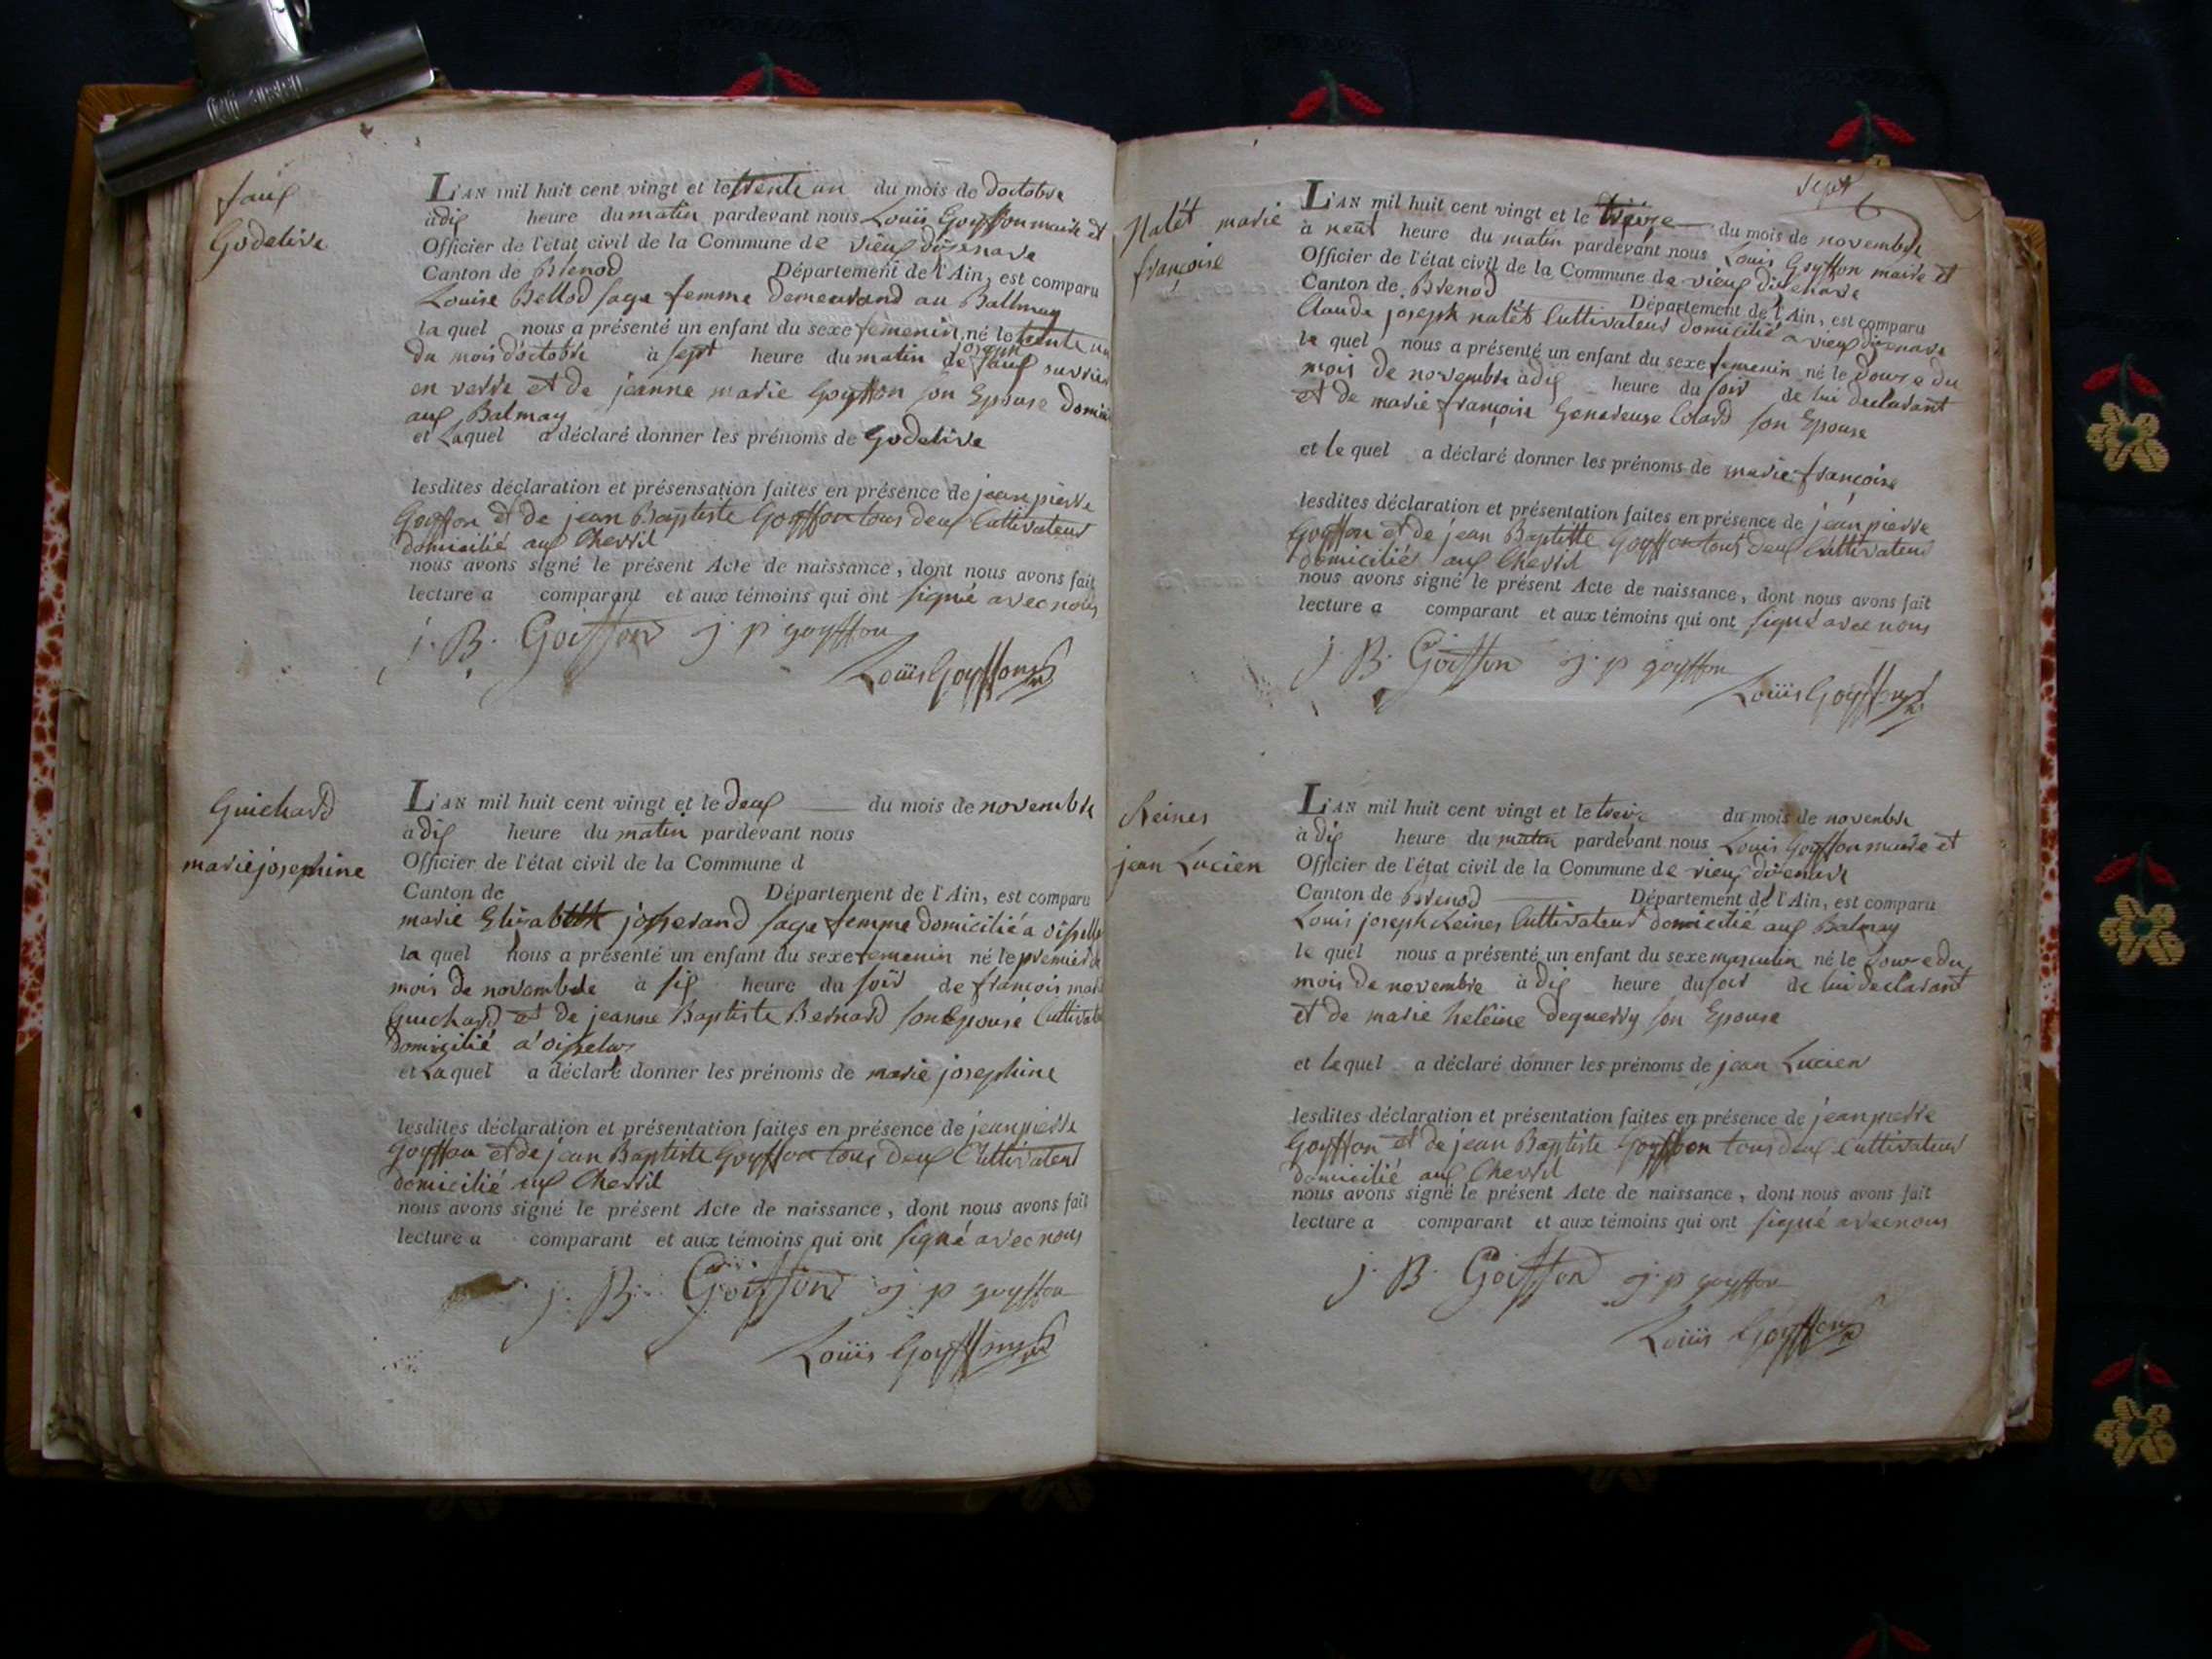 faux
Godelive
L'AN mil huit cent vingt et le trente un du mois de doctobre
à dix heure du matin pardevant nous Louis Goyffon maire et
Officier de l'état civil de la Commune de vieux dizenave
Canton de Brenod Département de l'Ain, est comparu
Louise Bellod sage femme demeurand au Ballmay
la quel nous a présenté un enfant du sexe femenin né le trente un
du mois doctobre à sept heure du matin de joseph faux ouvrier
en verre et de jeanne marie Goyffon son Epouse domici
aux Balmay
et Laquel a déclaré donner les prénoms de Godelive
lesdites déclaration et présensation faites en présence de jean pierre
Goyffon et de jean Baptiste Goyffon tous deux Cultivateur
domicilié aux Cherril
nous avons signé le présent Acte de naissance, dont nous avons fait
lecture a comparant et aux témoins qui ont signé avec nous
j. B. Goiffon j. p goyffon
Louis Goyffon
Guichard
marie josephine
L'AN mil huit cent vingt et le deux du mois de novembre
à dix heure du matin pardevant nous
Officier de l'état civil de la Commune d
Canton de Département de l'Ain, est comparu
marie Elizabeth josserand sage femme domicilié a
la quel nous a présenté un enfant du sexe femenin né le premier
mois de novembre à six heure du soir de francois marie
Guichard et de jeanne Baptiste Bernard son Epouse Cultivate
domicilié a oisselas
et Laquel a déclaré donner les prénoms de marie josephine
lesdites déclaration et présentation faites en présence de jean pierre
Goyffon et de jean Baptiste Goyffon tous deux Cultivateur
domicilié aux Cherril
nous avons signé le présent Acte de naissance, dont nous avons fait
lecture a comparant et aux témoins qui ont signé avec nous
j. B. Goiffon j. p goyffon
Louis Goyffon
sept
Natét marie
françoise
L'AN mil huit cent vingt et le treize du mois de novembre
à neuf heure du matin pardevant nous Louis Goyffon maire et
Officier de l'état civil de la Commune de vieux dizenave
Canton de Brenod Département de l'Ain, est comparu
Claude joseph natét Cultivateur domicilié a vieux dizenave
le quel nous a présenté un enfant du sexe femenin né le douze du
mois de novembre à dix heure du soir de lui declarant
et de marie françoise Genereuse Colard son Epouse
et le quel a déclaré donner les prénoms de marie françoise
lesdites déclaration et présentation faites en présence de jean pierre
Goyffon et de jean Baptiste Goyffon tous deux Cultivateur
domicilié aux Cherril
nous avons signé le présent Acte de naissance, dont nous avons fait
lecture a comparant et aux témoins qui ont signé avec nous
j. B. Goiffon j. p goyffon
Louis Goyffon
Reines
jean Lucien
L'AN mil huit cent vingt et le treize du mois de novembre
à dix heure du matin pardevant nous Louis Goyffon maire et
Officier de l'état civil de la Commune de vieux dizenave
Canton de Brenod Département de l'Ain, est comparu
Louis joseph Reines Cultivateur domicilié aux Balmay
le quel nous a présenté un enfant du sexe masculin né le douze du
mois de novembre à dix heure du soir de lui declarant
et de marie heleine dequerry son Epouse
et le quel a déclaré donner les prénoms de jean Lucien
lesdites déclaration et présentation faites en présence de jean pierre
Goyffon et de jean Baptiste Goyffon tous deux Cultivateur
domicilié aux Cherril
nous avons signé le présent Acte de naissance, dont nous avons fait
lecture a comparant et aux témoins qui ont signé avec nous
j. B. Goiffon j. p goyffon
Louis Goyffon